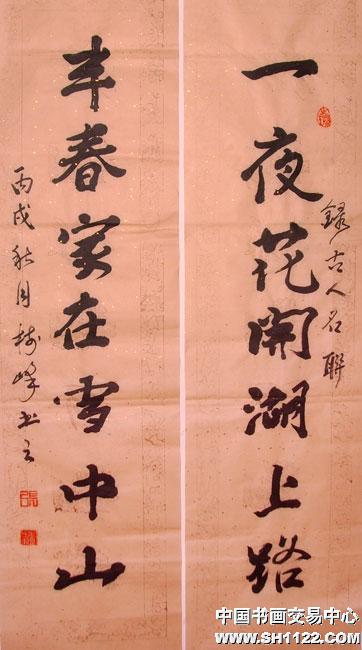 一夜花開湖上路
錄古人名聯
半春家在雪中山
丙戌秋月峰书之
張
中国书画交易中心
www.SH1122.com